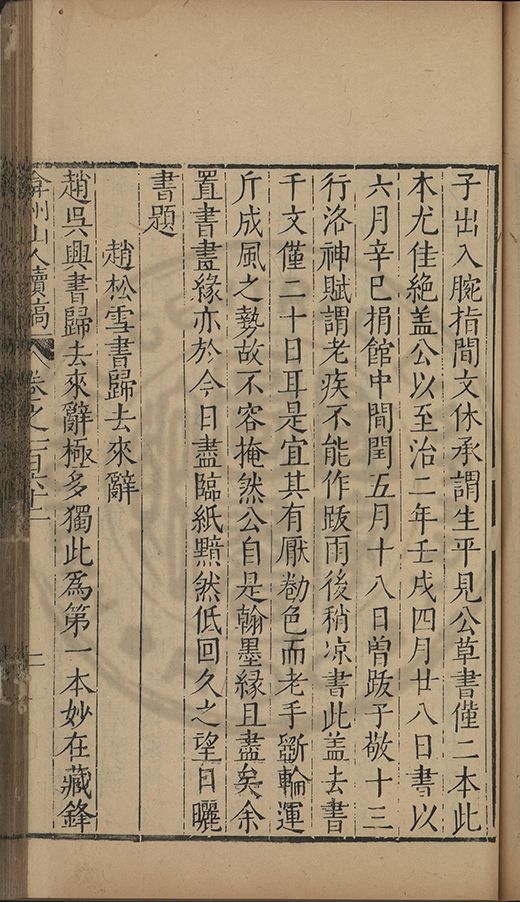 子出入腕指間文休承謂生平見公草書僅二本此
木尤佳絕盖公以至治二年壬戌四月廿八日書以
六月辛巳捐館中間閏五月十八日曾跋子敬十三
行洛神賦謂老疾不能作跋雨後稍凉書此盖去書
千文僅二十日耳是宜其有厭勌色而老手斵輪運
斤成風之勢故不容掩然公自是翰墨緣且盡矣余
置書畫緣亦於今日盡臨紙黯然低回久之望日曬
書題
趙松雪書歸去來辭
趙吳興書歸去來辭極多獨此爲第一本妙在藏鋒
弇州山人續稿 卷之一百六十二